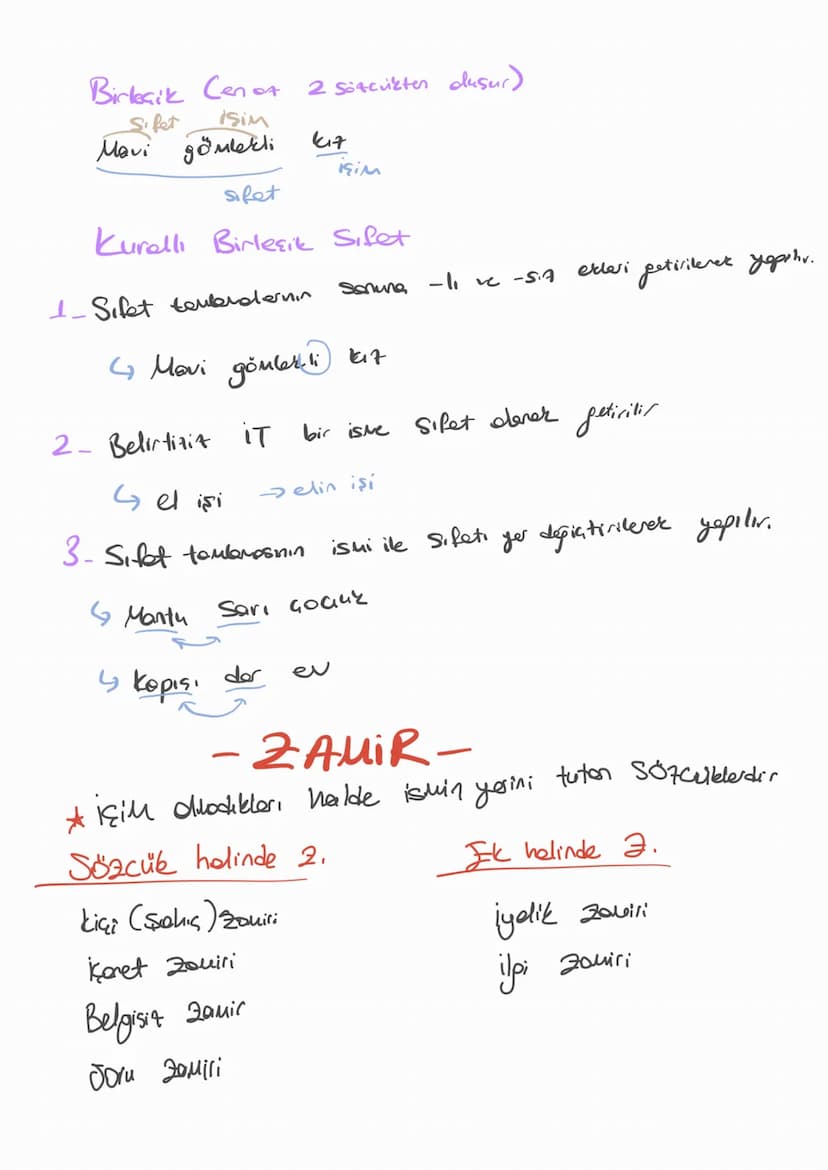 Birleşik (en az 2 sözcükten oluşur)
sıfat isim
Mavi gömlekli kız
isim
sıfat
Kurallı Birleşik Sıfat
1- Sıfat tamlamalarının sonuna -lı ve -sız ekleri getirilerek yapılır.
↳ Mavi gömlekli kız
2- Belirtisiz İT bir isme sıfat olarak getirilir
↳ el işi → elin işi
3- Sıfat tamlamasının ismi ile sıfatı yer değiştirilerek yapılır.
↳ Mantu sarı çocuk
↳ kapısı dar ev
- ZAMİR -
★ isim olmadıkları halde ismin yerini tutan sözcüklerdir
Sözcük halinde z.
Ek halinde z.
kişi (şahıs) zamiri
iyelik zamiri
işaret zamiri
ilgi zamiri
Belgisiz zamir
soru zamiri